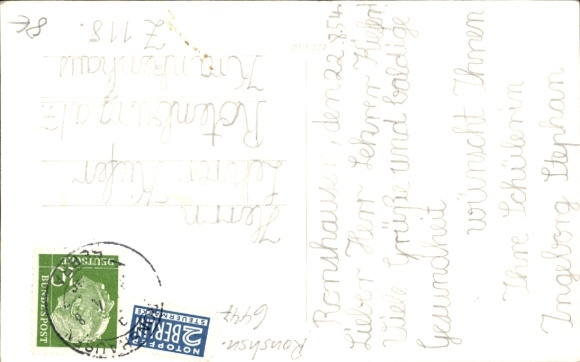 Ronshausen, den 22.8.54.
Lieber Herr Lehrer Kiefer!
Viele Grüße und baldige
Gesundheit
wünscht Ihnen
Ihre Schülerin
Ingeborg Stephan
Herrn
Lehrer Kiefer
Rotenburg a/F
Krankenhaus
Z 118.
8€
Ronshsn.
644
DEUTSCHE
BUNDESPOST
NOTOPFER
2 BERLIN
STEUERMARKE